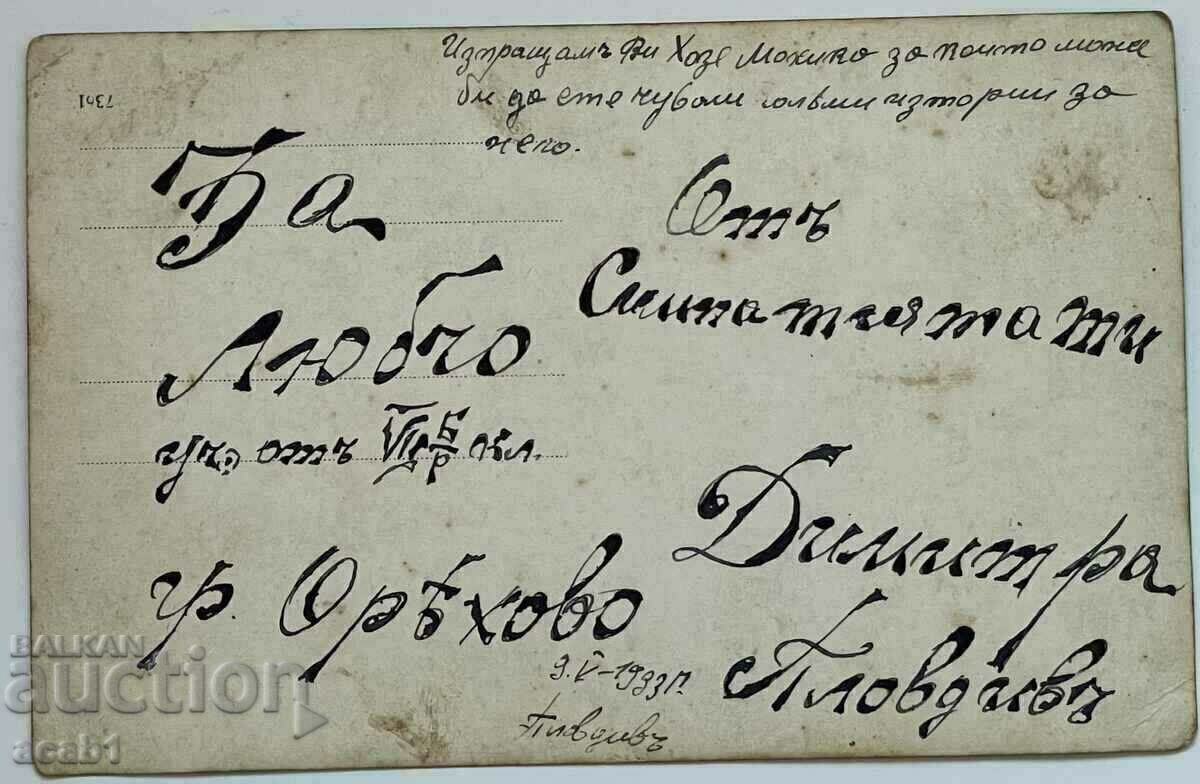 Изпращамъ Ви Хозе Мохика за който може
би да сте чували голѣми истории за
него.
7361
За
Любчо
уч. отъ VII Б/р кл.
гр. Орѣхово
Отъ
Симпатията ти
Димитра
Пловдивъ
9.V-1933 г.
Пловдивъ
BALKAN
auction
acab1